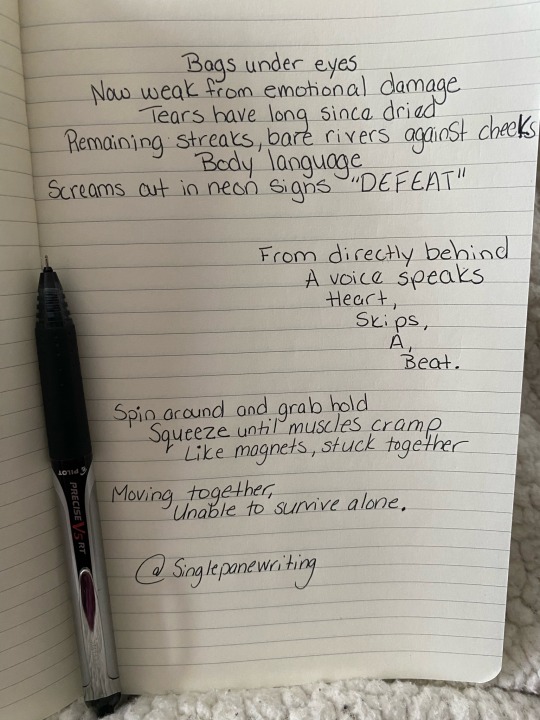 Bags under eyes
Now weak from emotional damage
Tears have long since dried
Remaining streaks, bare rivers against cheeks
Body language
Screams out in neon signs "DEFEAT"
From directly behind
A voice speaks
Heart,
Skips,
A,
Beat.
Spin around and grab hold
Squeeze until muscles cramp
Like magnets, stuck together
Moving together,
Unable to survive alone.
@Singlepanewriting
PILOT
PRECISE V5 RT